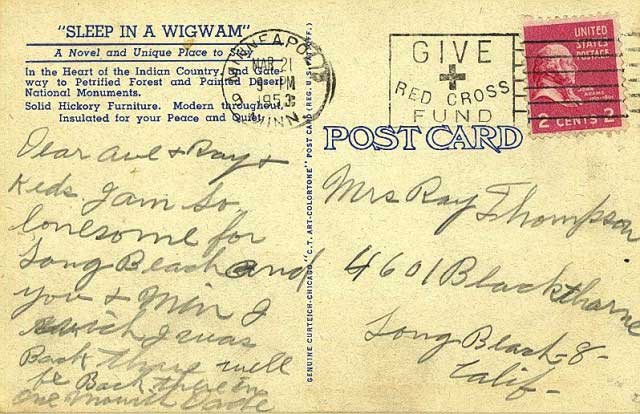 "SLEEP IN A WIGWAM"
A Novel and Unique Place to
In the Heart of the Indian Country, and Gate-
way to Petrified Forest and Painted Desert
National Monuments.
Solid Hickory Furniture. Modern throughout,
Insulated for your Peace and Quiet.
MINNEAPOLIS
MAR 21
9 PM
1953
MINN
GIVE
RED CROSS
FUND
UNITED
STATES
POSTAGE
ADAMS
2 CENTS 2
POST CARD
GENUINE CURTEICH-CHICAGO "C.T. ART-COLORTONE" POST CARD (REG. U.S. PAT. OFF.)
Dear & Ray &
Kids I am so
lonesome for
Long Beach and
you & Min I
wich I was
Back there well
be Back there in
one mounth
Mrs Ray Thompson
4601 Blackthorne
Long Beach-8-
Calif-